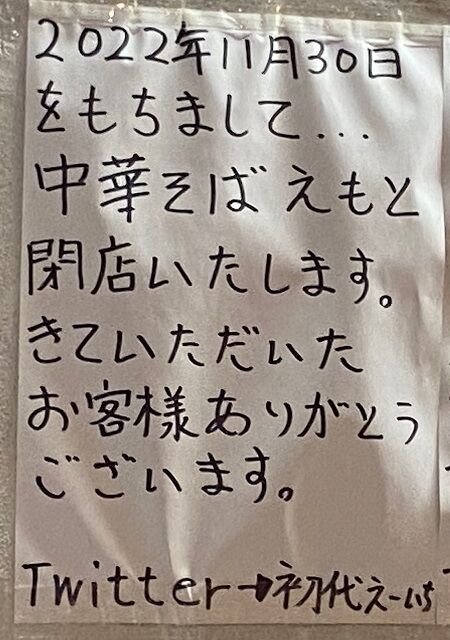 2022年11月30日
をもちまして...
中華そば えもと
閉店いたします。
きていただいた
お客様ありがとう
ございます。
Twitter→初代えーいち